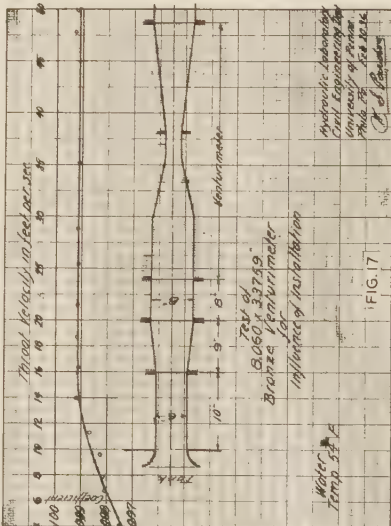 Throat Velocity in feet per sec.
6 8 10 12 14 16 20 25 30 35 40 45 50
Coefficient
1.00
.99
.98
.97
Tank
10" 9" 8" Venturimeter
8"
Test of
8.060 x 3.3759"
Bronze Venturimeter
for
Influence of Installation
Water
Temp. 54° F.
Hydraulic Laboratory
Civil Engineering
University of Penna.
Phila. Pa.
FIG.17